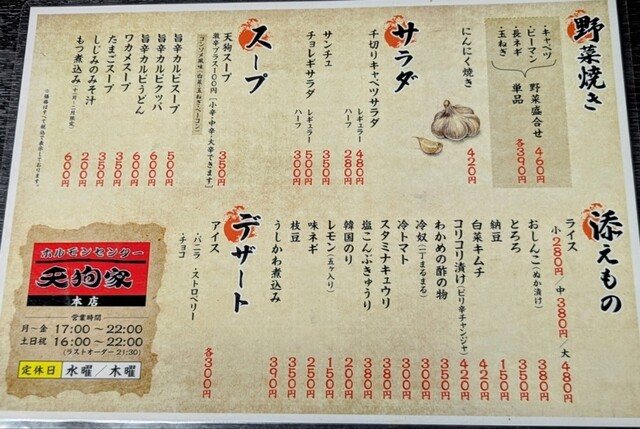 野菜焼き
・キャベツ
・ピーマン
・長ネギ
・玉ねぎ
野菜盛合せ 460円
単品 各390円
にんにく焼き 420円
サラダ
千切りキャベツサラダ レギュラー 480円
ハーフ 280円
サンチェ 350円
チョレギサラダ レギュラー 500円
ハーフ 300円
スープ
天狗スープ 350円
激辛プラス100円 [小辛・中辛・大辛できます]
コンソメ風味(白菜・玉ねぎ・ベーコン)
旨辛カルビスープ 500円
旨辛カルビクッパ 600円
旨辛カルビうどん 600円
ワカメスープ 350円
たまごスープ 350円
しじみのみそ汁 200円
もつ煮込み(十一月~二月限定) 600円
※価格はすべて税込で表示しております。
添えもの
ライス 小 280円/中 380円/大 480円
おしんこ(ぬか漬け) 380円
とろろ 350円
納豆 150円
白菜キムチ 420円
コリコリ漬け(ピリ辛チャンジャ) 420円
わかめの酢の物 350円
冷奴(一丁まるまる) 300円
冷トマト 380円
スタミナキュウリ 380円
塩こんぶきゅうり 380円
韓国のり 200円
レモン(五ヶ入り) 150円
味ネギ 250円
枝豆 350円
うしかわ煮込み 390円
デザート
アイス 各300円
・バニラ ・ストロベリー
・チョコ
ホルモンセンター
天狗家
本店
営業時間
月~金 17:00~22:00
土日祝 16:00~22:00
(ラストオーダー 21:30)
定休日 水曜/木曜